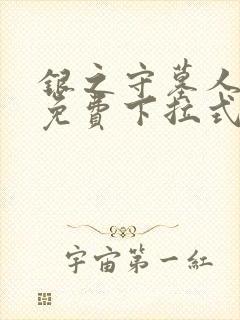 银之守墓人
免費下拉式
宇宙第一紅